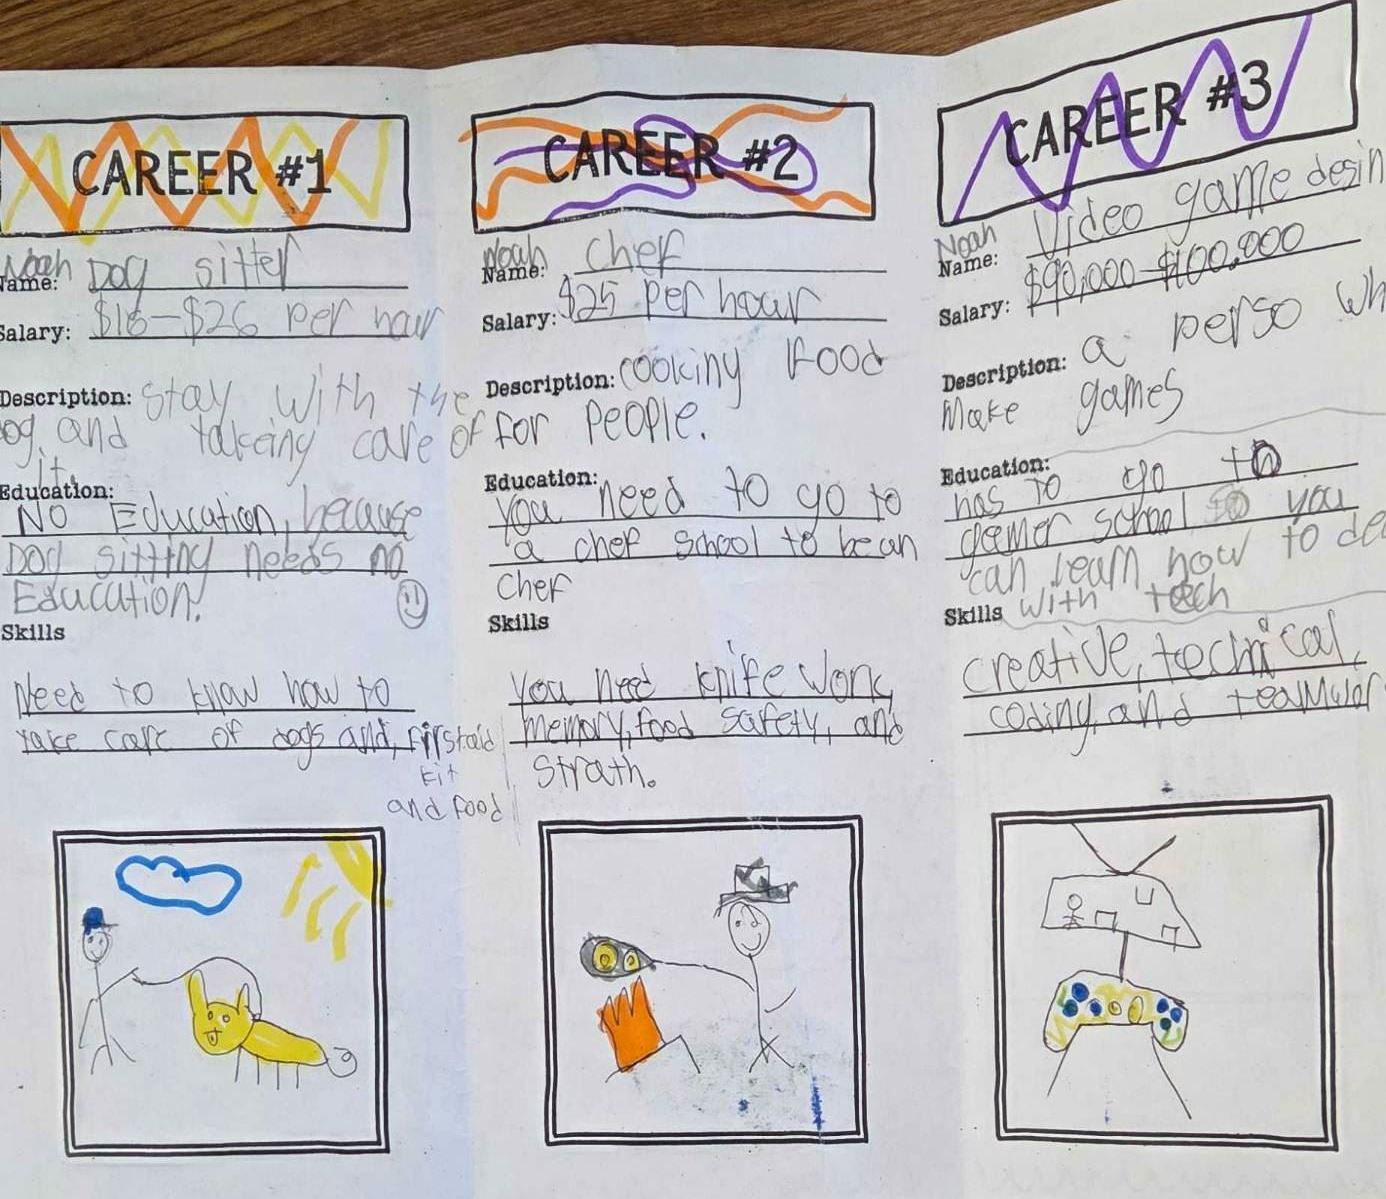 CAREER #1
Noah
Name: Dog sitter
Salary: $16-$26 per hour
Description: Stay with the
og and takeing care of
it.
Education:
No Education, because
Dog sitting needs no
Education!
Skills
Need to know how to
take care of dogs and, firstaid
kit
and food
CAREER #2
Noah
Name: Chef
Salary: $25 per hour
Description: cooking food
for people.
Education:
You need to go to
a chef school to be an
chef
Skills
You need knife work,
memory, food safety, and
strath.
CAREER #3
Noah
Name: Video game desin
Salary: $90,000-$100,000
Description: a perso wh
Make games
Education:
has to go to
gamer school so you
can learn how to dea
with tech
Skills
creative, technical,
coding, and teamwor